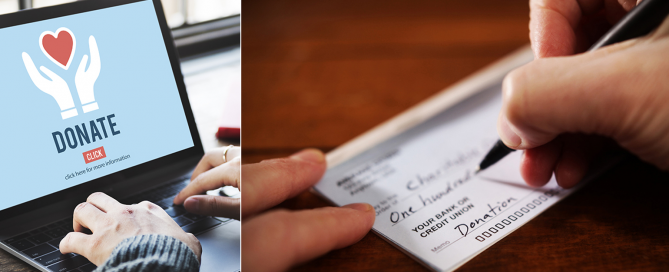 DONATE
CLICK
click here for more information
Charitable
One hundred
YOUR BANK OR
CREDIT UNION
Donation